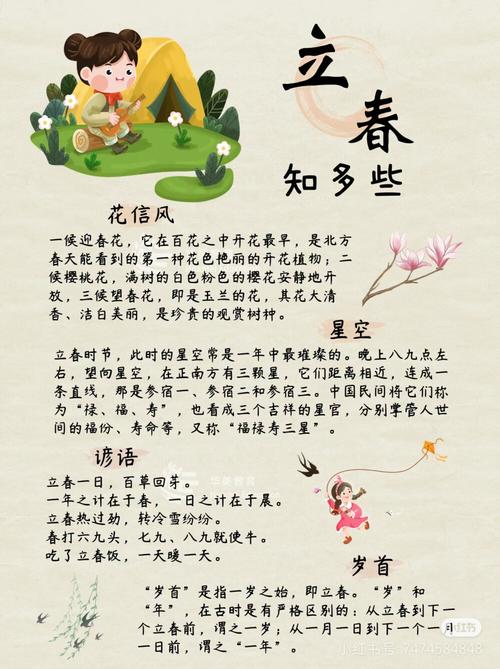 立春
知多些
花信风
一候迎春花，它在百花之中开花最早，是北方
春天能看到的第一种花色艳丽的开花植物；二
候樱桃花，满树的白色粉色的樱花安静地开
放，三候望春花，即是玉兰的花，其花大清
香、洁白美丽，是珍贵的观赏树种。
星空
立春时节，此时的星空常是一年中最璀璨的。晚上八九点左
右，望向星空，在正南方有三颗星，它们距离相近，连成一
条直线，那是参宿一、参宿二和参宿三。中国民间将它们称
为“禄、福、寿”，也看成三个吉祥的星官，分别掌管人世
间的福份、寿命等，又称“福禄寿三星”。
谚语
立春一日，百草回芽。
华美教育
一年之计在于春，一日之计在于晨。
立春热过劲，转冷雪纷纷。
春打六九头，七九、八九就使牛。
吃了立春饭，一天暖一天。
岁首
“岁首”是指一岁之始，即立春。“岁”和
“年”，在古时是有严格区别的：从立春到下一
个立春前，谓之一岁；从一月一日到下一个一月
一日前，谓之“一年”。
小红书
小红书号：7474584848